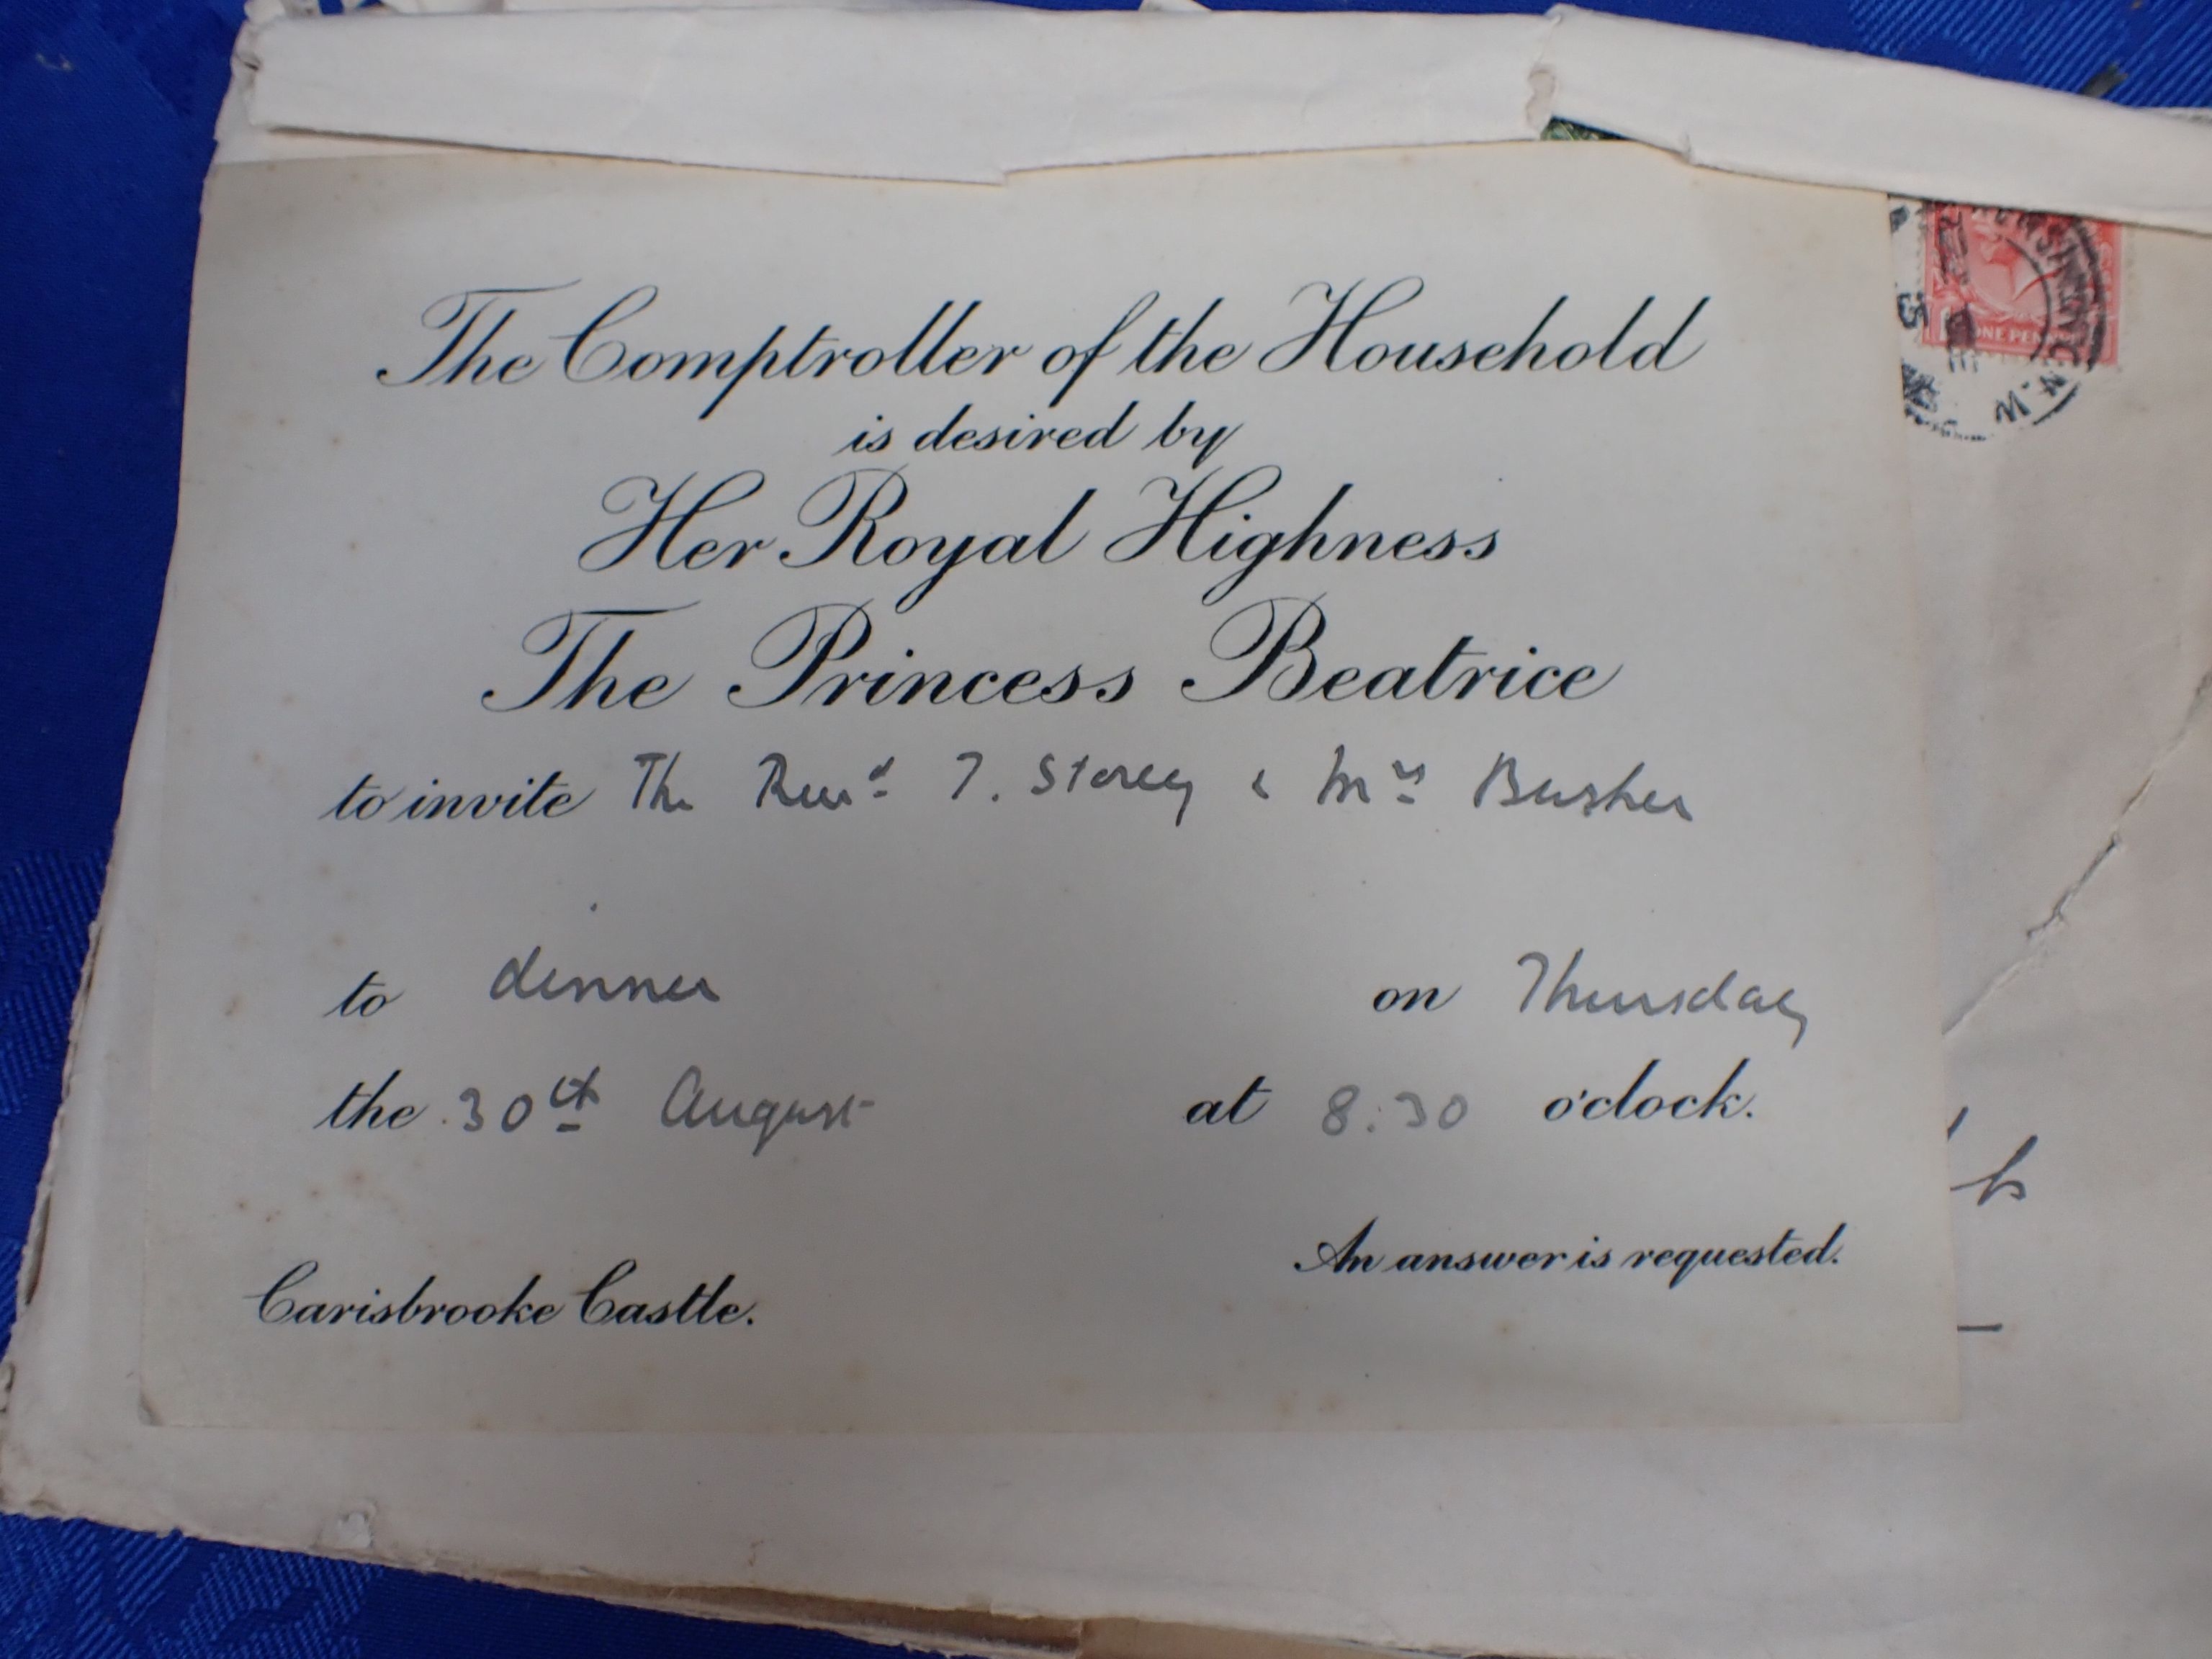 The Comptroller of the Household
is desired by
Her Royal Highness
The Princess Beatrice
to invite The Revd T. Storey & Mrs Busher
to dinner on Thursday
the 30th August at 8.30 o'clock.
An answer is requested.
Carisbrooke Castle.
ONE PENNY